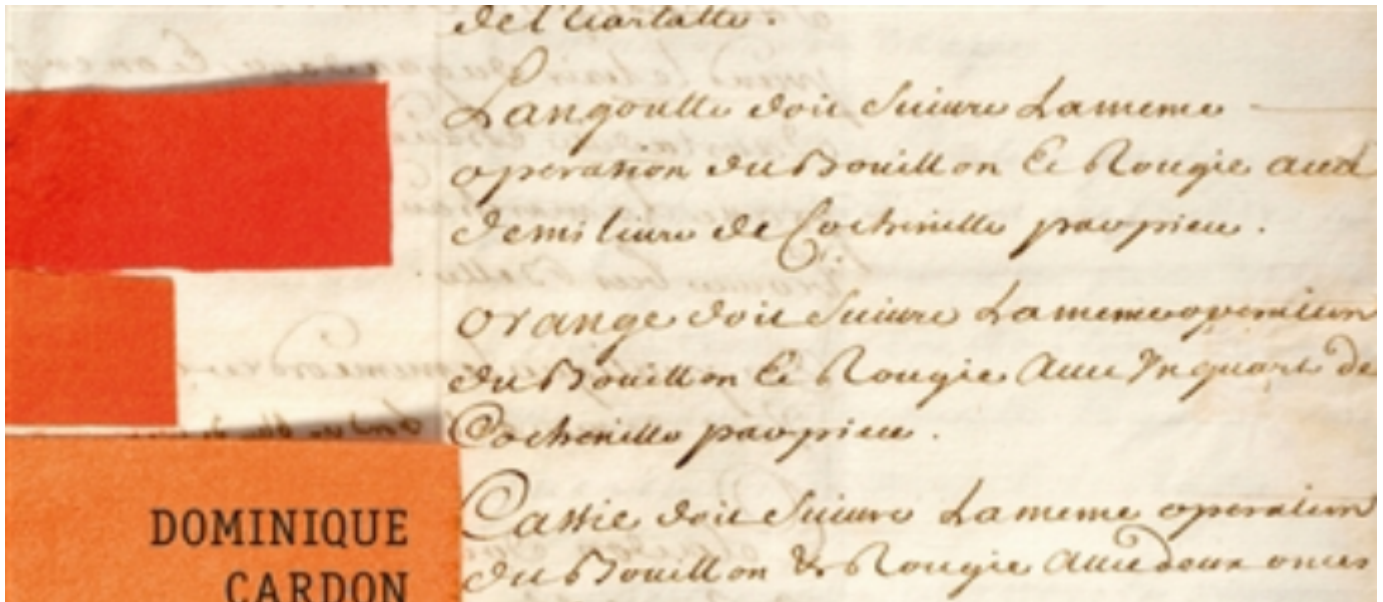 de l'Ecarlatte.
Langoutte doit Suivre La meme
operation du Bouillon Et Rougie avec
demi livre de Cochenille par piece.
orange doit Suivre La meme operation
du Bouillon Et Rougie avec Un quart de
Cochenille par piece.
Cassie doit Suivre La meme operation
du Bouillon & Rougie avec deux onces
DOMINIQUE
CARDON